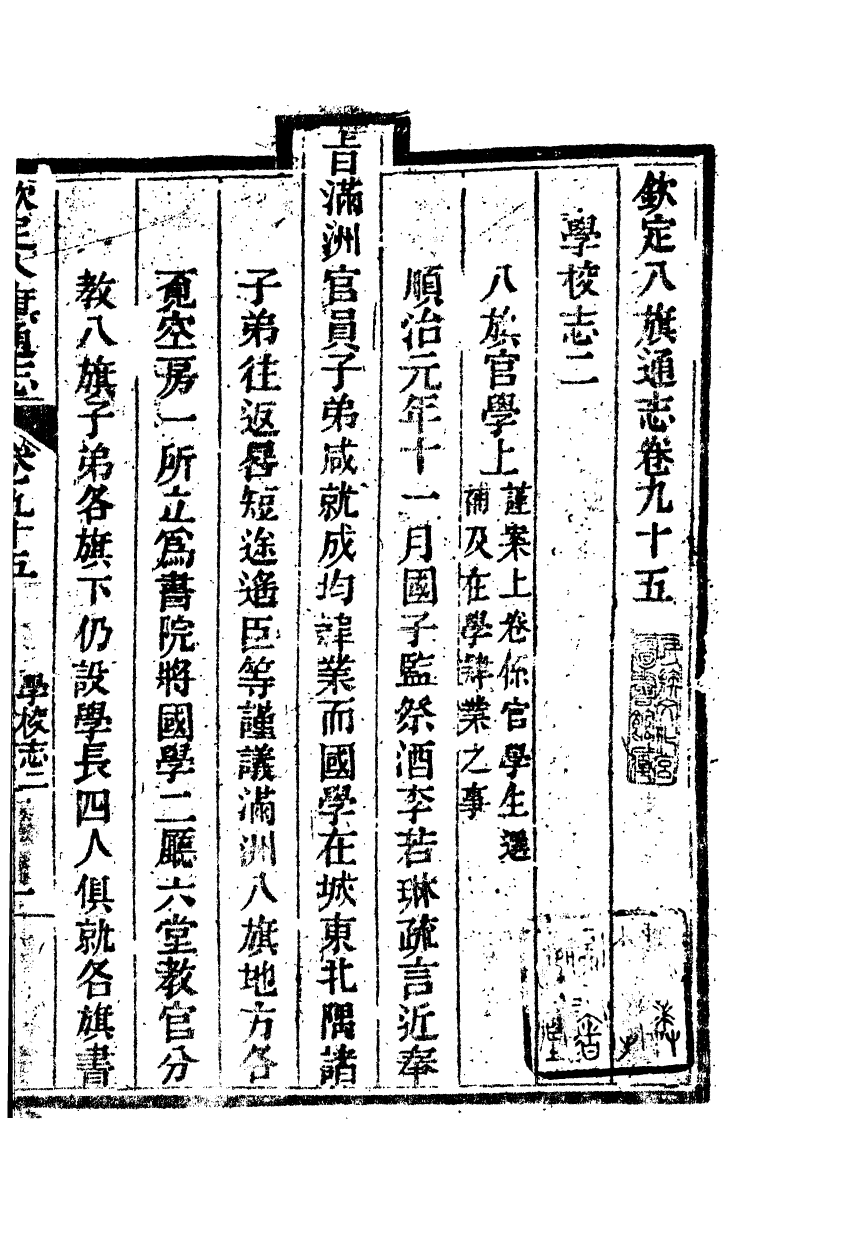 欽定八旗通志卷九十五
學校志二
八旗官學上
謹案上卷係官學生選
補及在學肄業之事
順治元年十一月國子監祭酒李若琳疏言近奉
旨滿洲官員子弟咸就成均肄業而國學在城東北隅諸
子弟往返晷短途遙臣等謹議滿洲八旗地方各
覓空房一所立爲書院將國學二廳六堂教官分
教八旗子弟各旗下仍設學長四人俱就各旗書
欽定八旗通志
卷九十五
學校志二
一